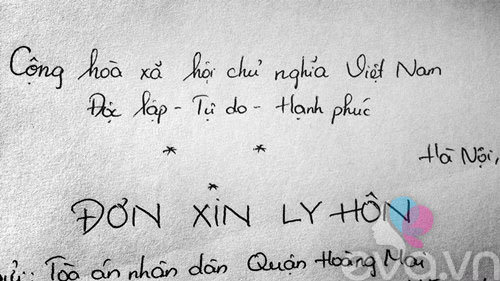 Cộng hoà xã hội chủ nghĩa Việt Nam
Độc lập - Tự do - Hạnh phúc
* *
*
Hà Nội,
ĐƠN XIN LY HÔN
Toà án nhân dân Quận Hoàng Mai
eva.vn